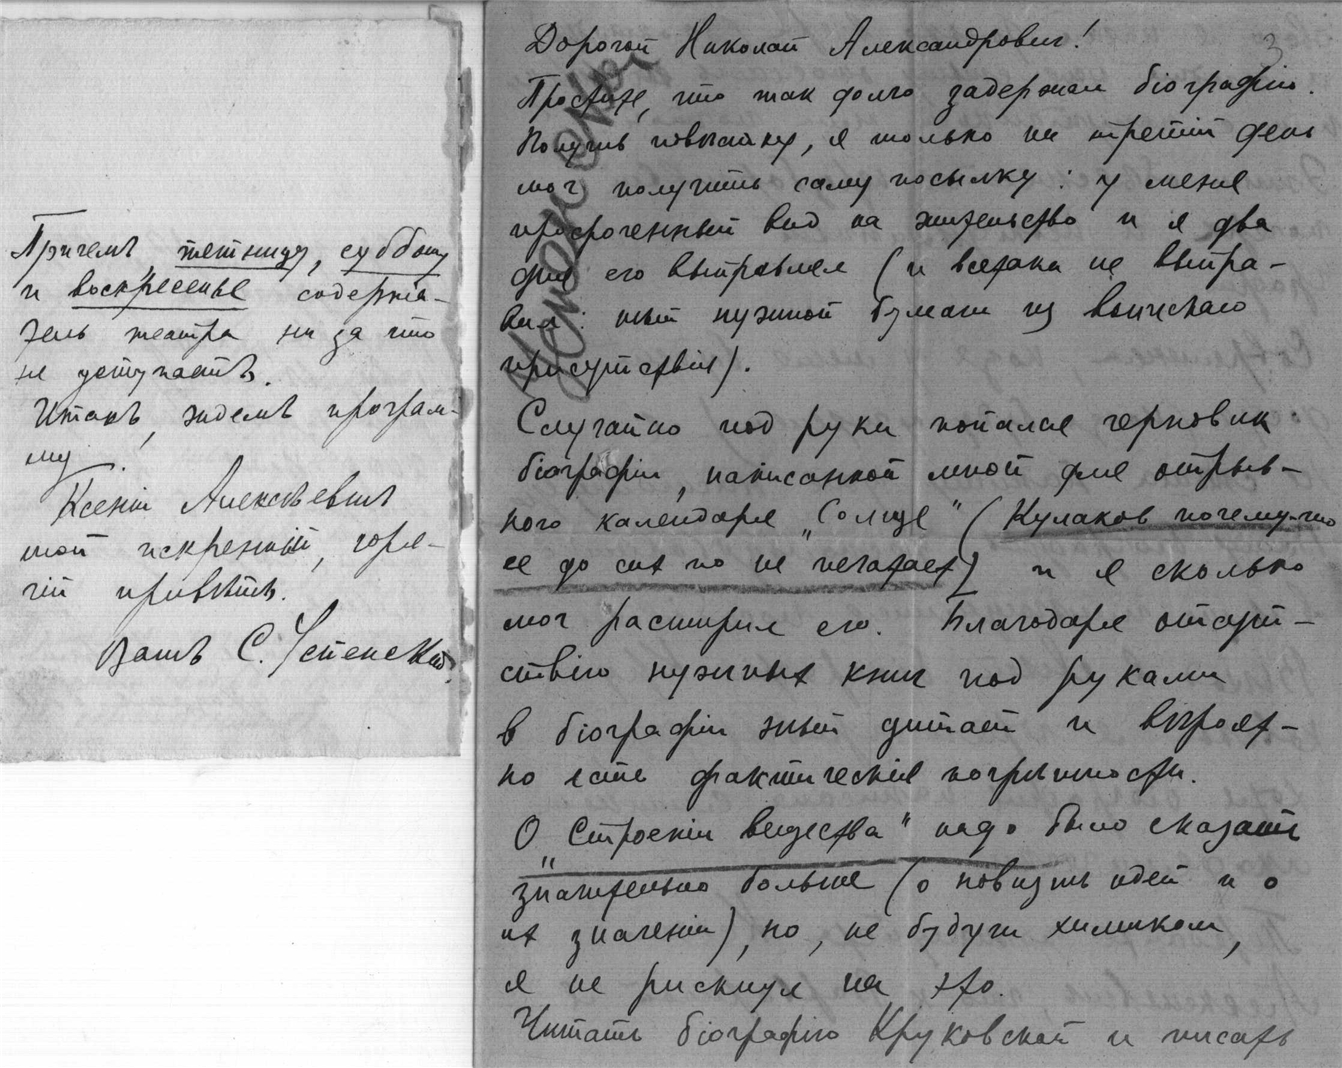 Причемъ пятницу, субботу
и воскресенье содержа-
тель театра ни за что
не уступаетъ.
Итакъ, ждемъ програм-
му.
Ксеніи Алексѣевнѣ
мой искренній, горя-
чій привѣтъ.
Вашъ С. Успенскій.
3
Дорогой Николай Александрович!
Простите, что так долго задержал біографію.
Получив повѣстку, я только на третій день
мог получить саму посылку: у меня
просроченный вид на жительство и я два
дня его выправлял (и всетаки не выпра-
вил: нѣт нужной бумаги из воинскаго
присутствія).
Случайно под руки попался черновик
біографіи, написанной мной для отрыв-
ного календаря „Солнце" (Кулаков почему-то
ее до сих пор не печатает) и я сколько
мог расширил его. Благодаря отсут-
ствію нужных книг под руками
в біографіи нѣт дат и вѣроят-
но есть фактическія погрѣшности.
О „Строеніи вещества" надо было сказать
значительно больше (о новизнѣ идей и о
их значеніи), но, не будучи химиком,
я не рискнул на это.
Читать біографію Круковской и писать
Успенскій